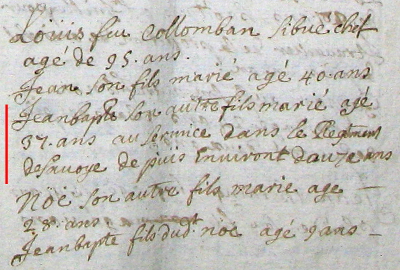 Louis feu Collomban Sibue chef
agé de 95. ans.
Jean son fils marié agé 40. ans
Jeanbapte son autre fils marié agé
37. ans au service dans le Regiment
de Savoye depuis environt douze ans
Noë son autre fils marie age —
28. ans
Jeanbapte fils dud.t noë agé 9 ans —